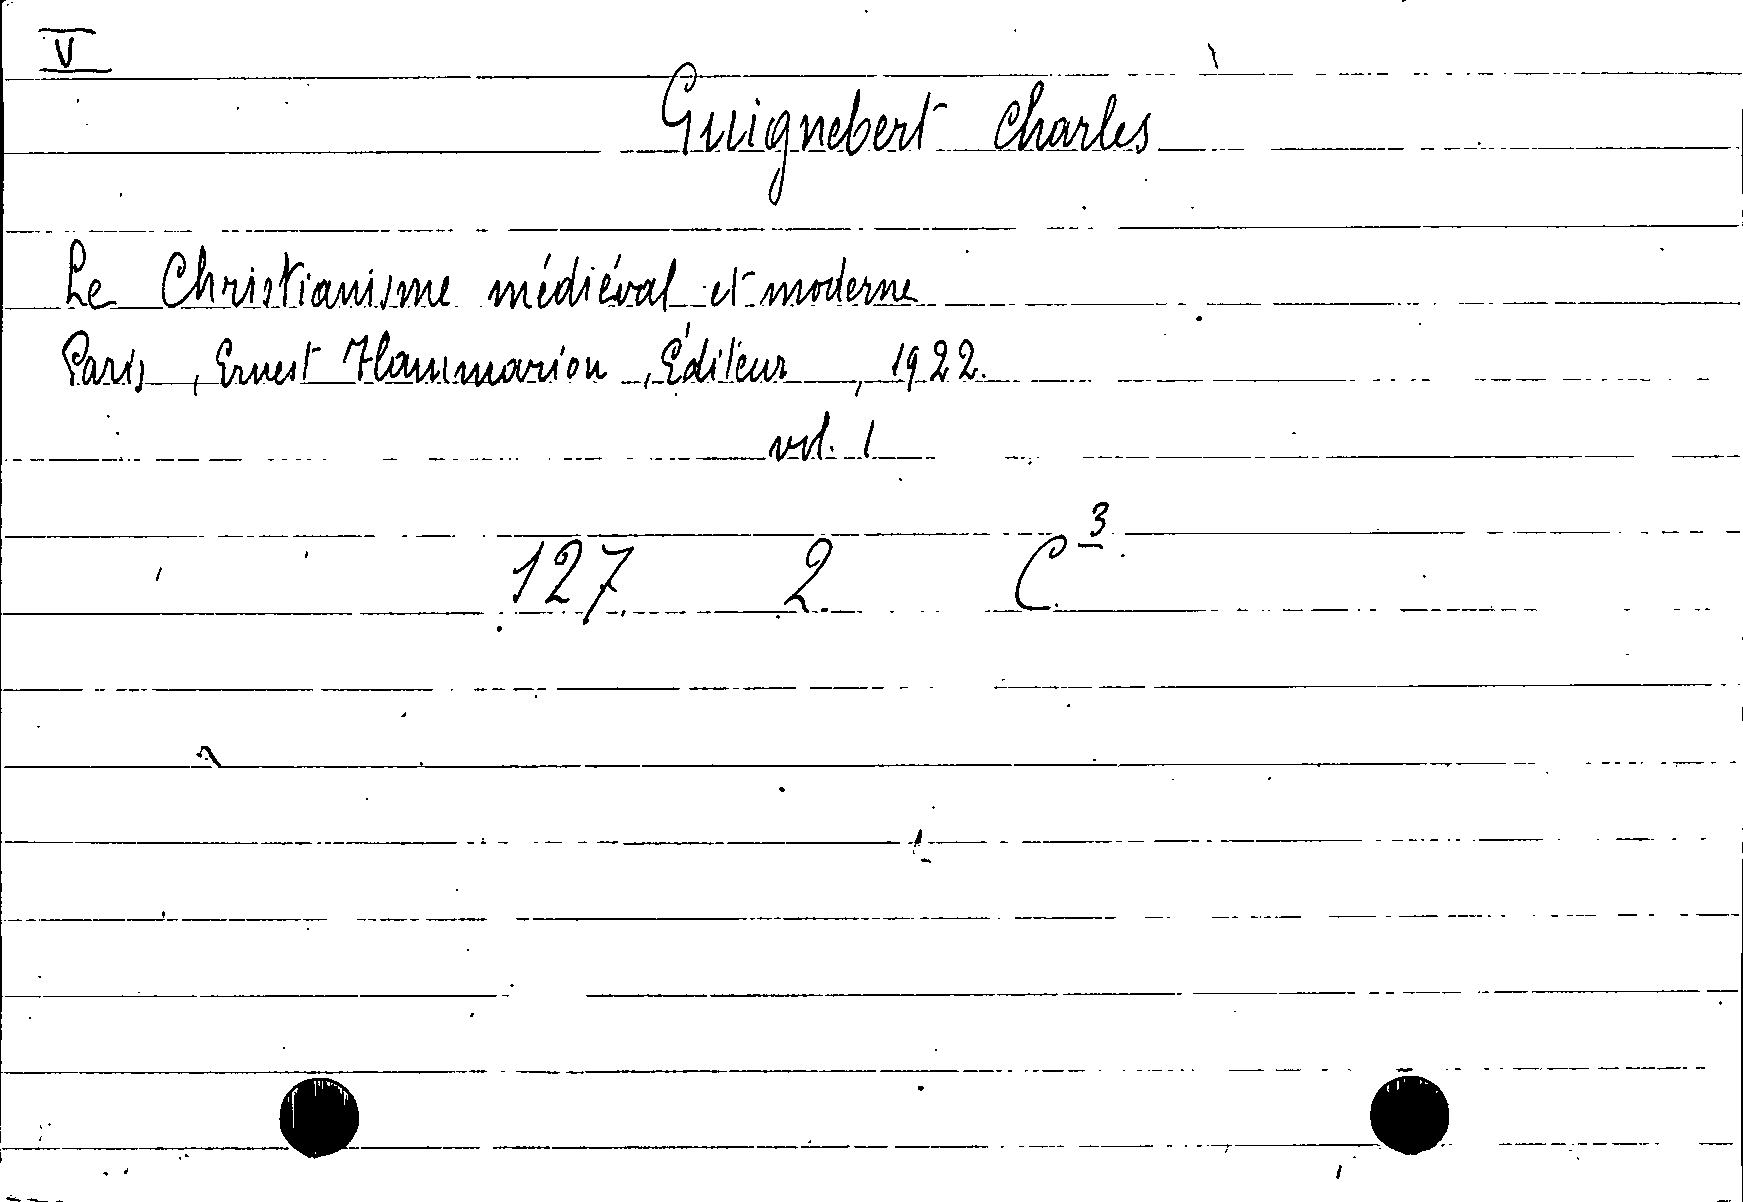 V
Guignebert Charles
Le Christianisme médiéval et moderne
Paris, Ernest Flammarion, Éditeur, 1922.
vol. 1
127 2 C³